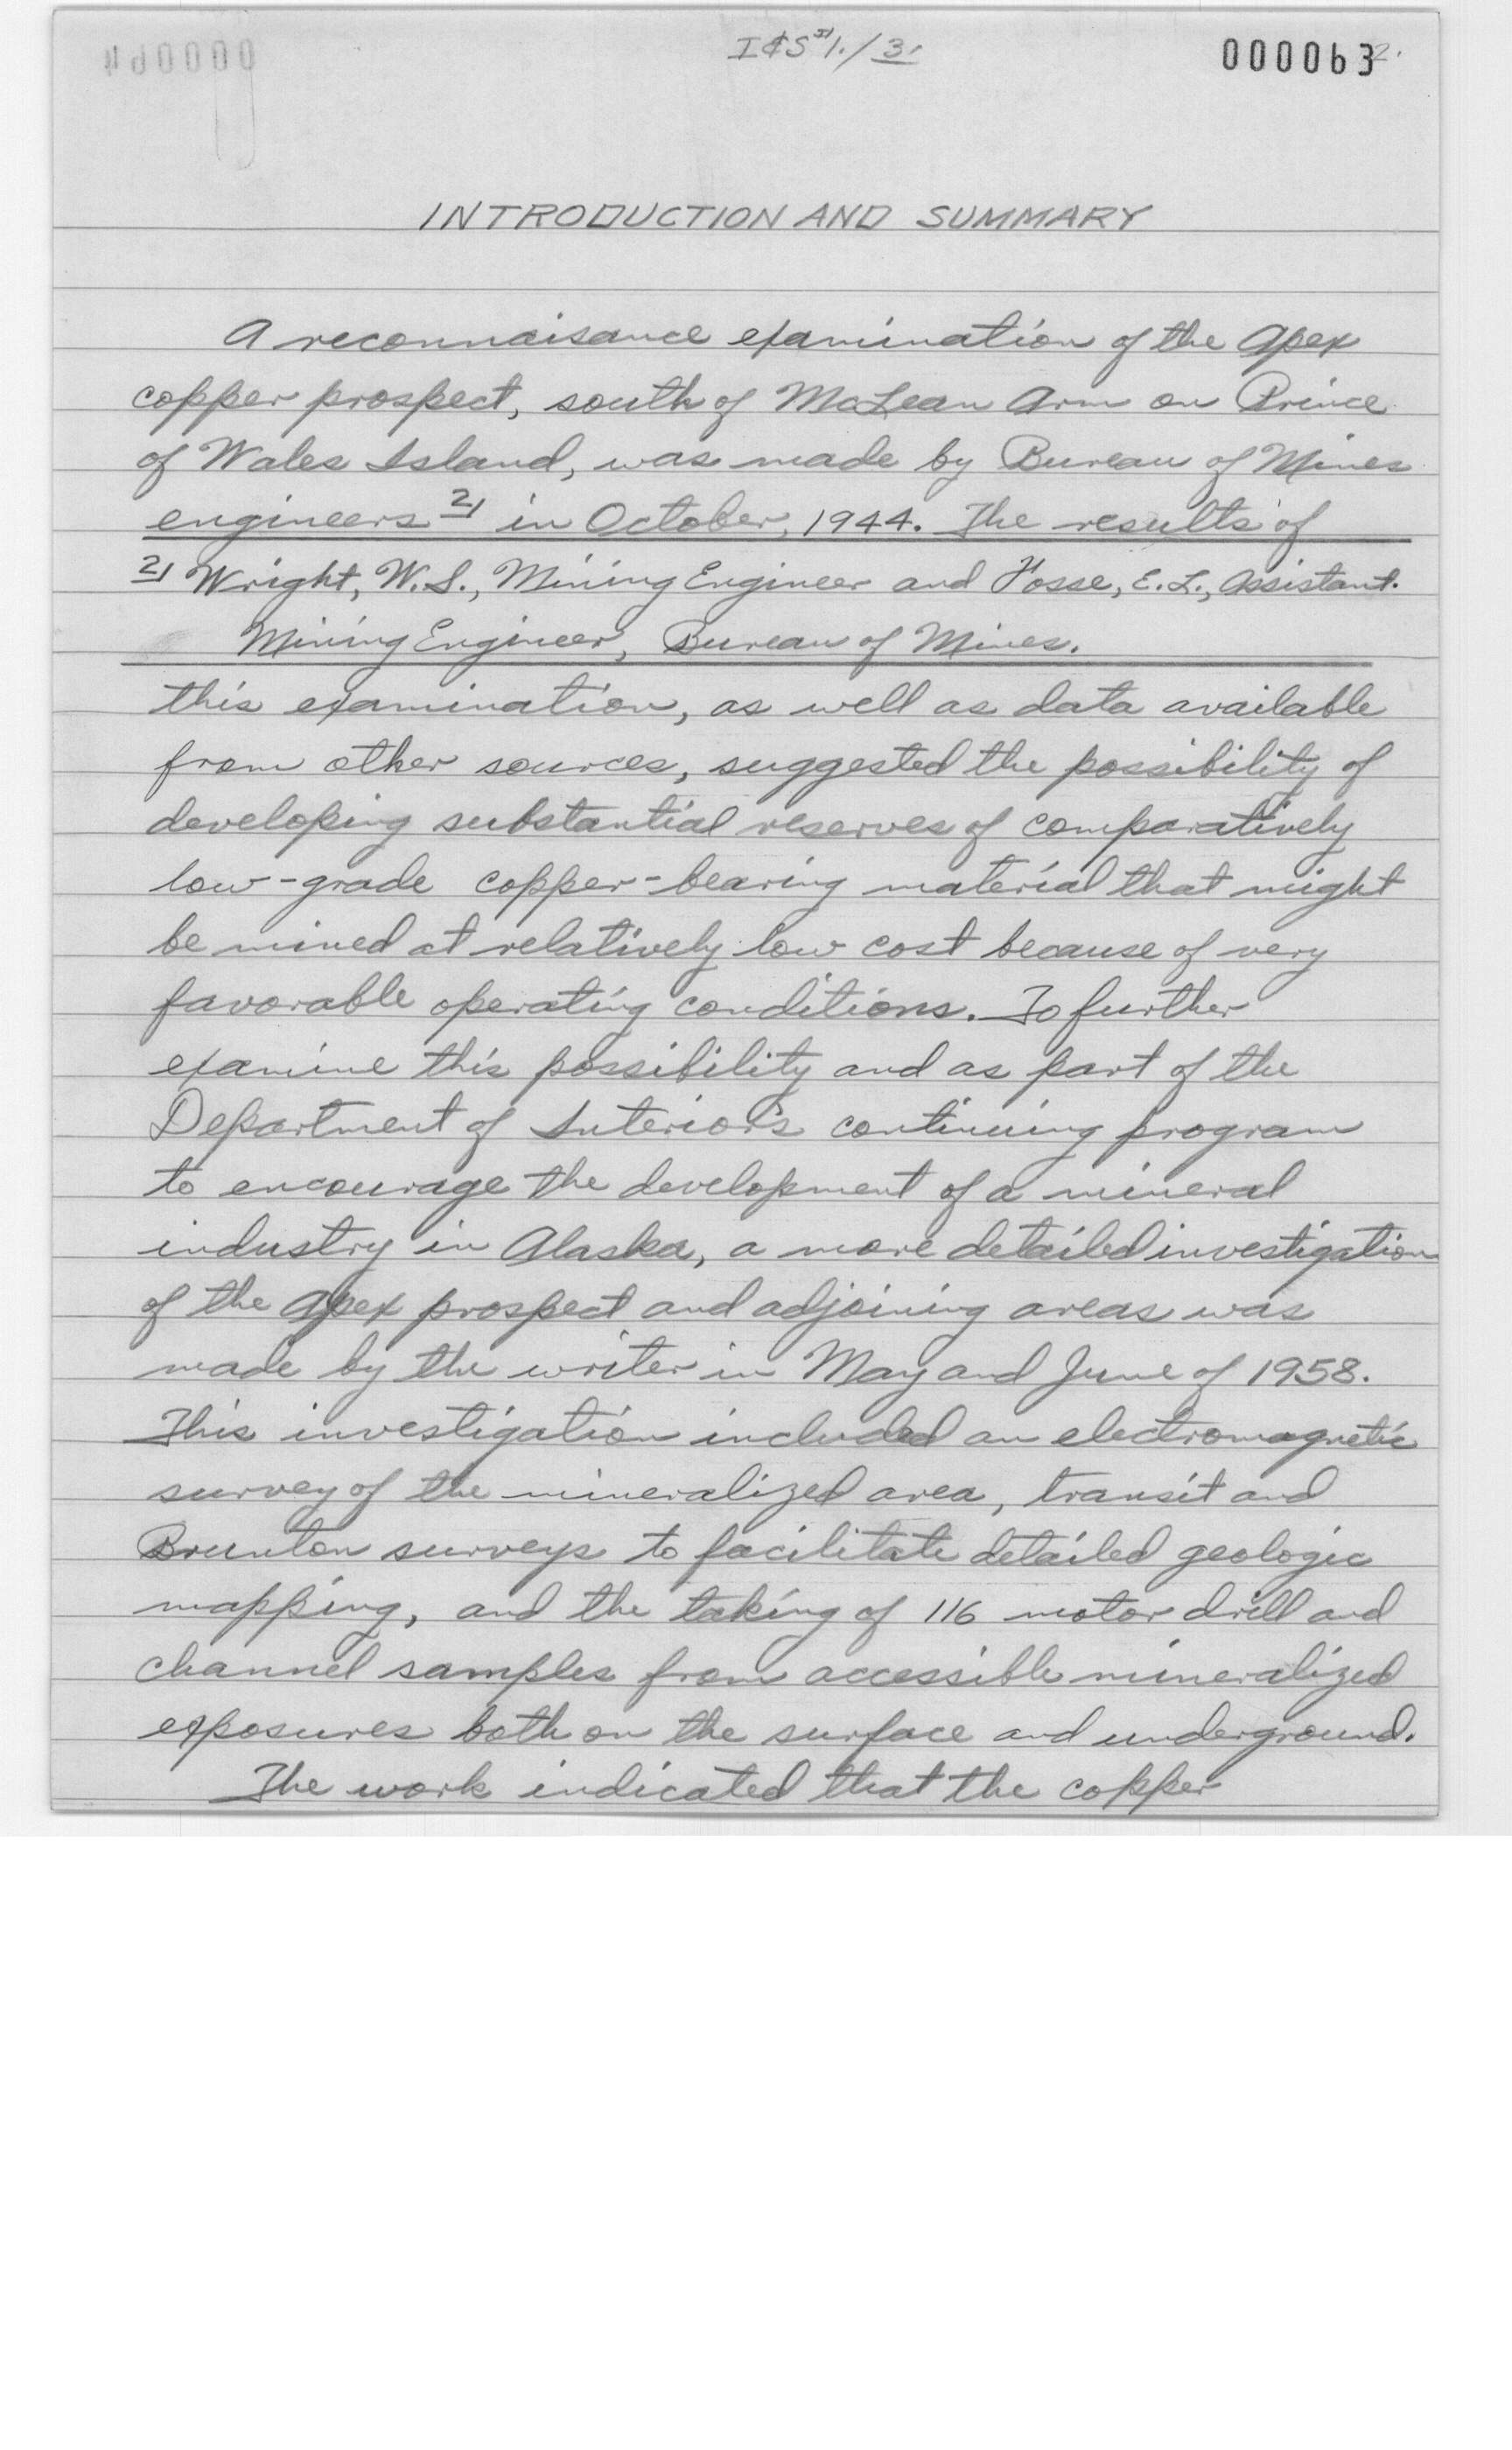 I&S 1./3.
000063 2.
INTRODUCTION AND SUMMARY
A reconnaisance examination of the Apex
copper prospect, south of McLean Arm on Prince
of Wales Island, was made by Bureau of Mines
engineers 2/ in October, 1944. The results of
2/ Wright, W.S., Mining Engineer and Fosse, E.L., Assistant.
Mining Engineer, Bureau of Mines.
this examination, as well as data available
from other sources, suggested the possibility of
developing substantial reserves of comparatively
low-grade copper-bearing material that might
be mined at relatively low cost because of very
favorable operating conditions. To further
examine this possibility and as part of the
Department of Interior's continuing program
to encourage the development of a mineral
industry in Alaska, a more detailed investigation
of the Apex prospect and adjoining areas was
made by the writer in May and June of 1958.
This investigation included an electromagnetic
survey of the mineralized area, transit and
Brunton surveys to facilitate detailed geologic
mapping, and the taking of 116 motor drill and
channel samples from accessible mineralized
exposures both on the surface and underground.
The work indicated that the copper